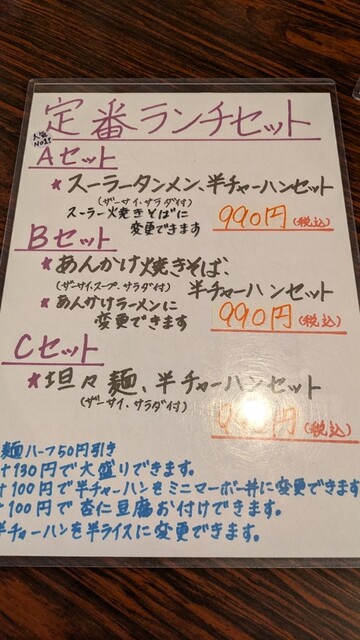 定番ランチセット
人気
No.1!!
Aセット
★スーラータンメン、半チャーハンセット
(ザーサイ、サラダ付)
スーラー焼きそばに
変更できます
990円(税込)
Bセット
★あんかけ焼きそば、
(ザーサイ、スープ、サラダ付)
半チャーハンセット
★あんかけラーメンに
変更できます
990円(税込)
Cセット
★坦々麺、半チャーハンセット
(ザーサイ、サラダ付)
990円(税込)
麺ハーフ50円引き
+130円で大盛りできます。
+100円で半チャーハンをミニマーボー丼に変更できます
+100円で杏仁豆腐お付けできます。
半チャーハンを半ライスに変更できます。